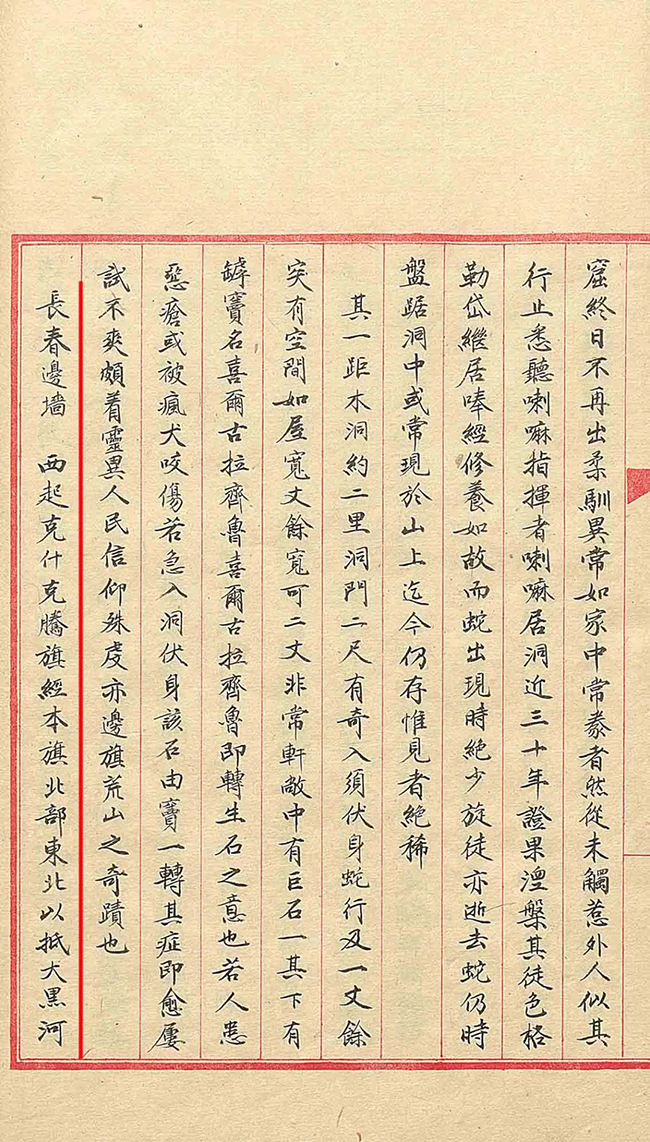 窟終日不再出柔馴異常如家中常豢者然從未觸惹外人似其
行止悉聽喇嘛指揮者喇嘛居洞近三十年證果湼槃其徒色格
勒岱繼居唪經修養如故而蛇出現時絶少旋徒亦逝去蛇仍時
盤踞洞中或常現於山上迄今仍存惟見者絶稀
其一距木洞約二里洞門二尺有奇入須伏身蛇行及一丈餘
突有空間如屋寬丈餘寬可二丈非常軒敞中有巨石一其下有
罅竇名喜爾古拉齊魯喜爾古拉齊魯即轉生石之意也若人患
惡瘡或被瘋犬咬傷若急入洞伏身該石由竇一轉其症即愈屢
試不爽頗着靈異人民信仰殊虔亦邊旗荒山之奇蹟也
長春邊墻 西起克什克騰旗經本旗北部東北以抵大黑河